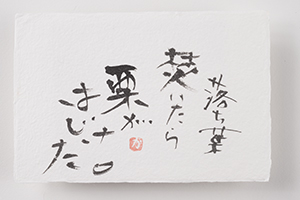 落ち葉
焚いたら
栗が
はじいた
か